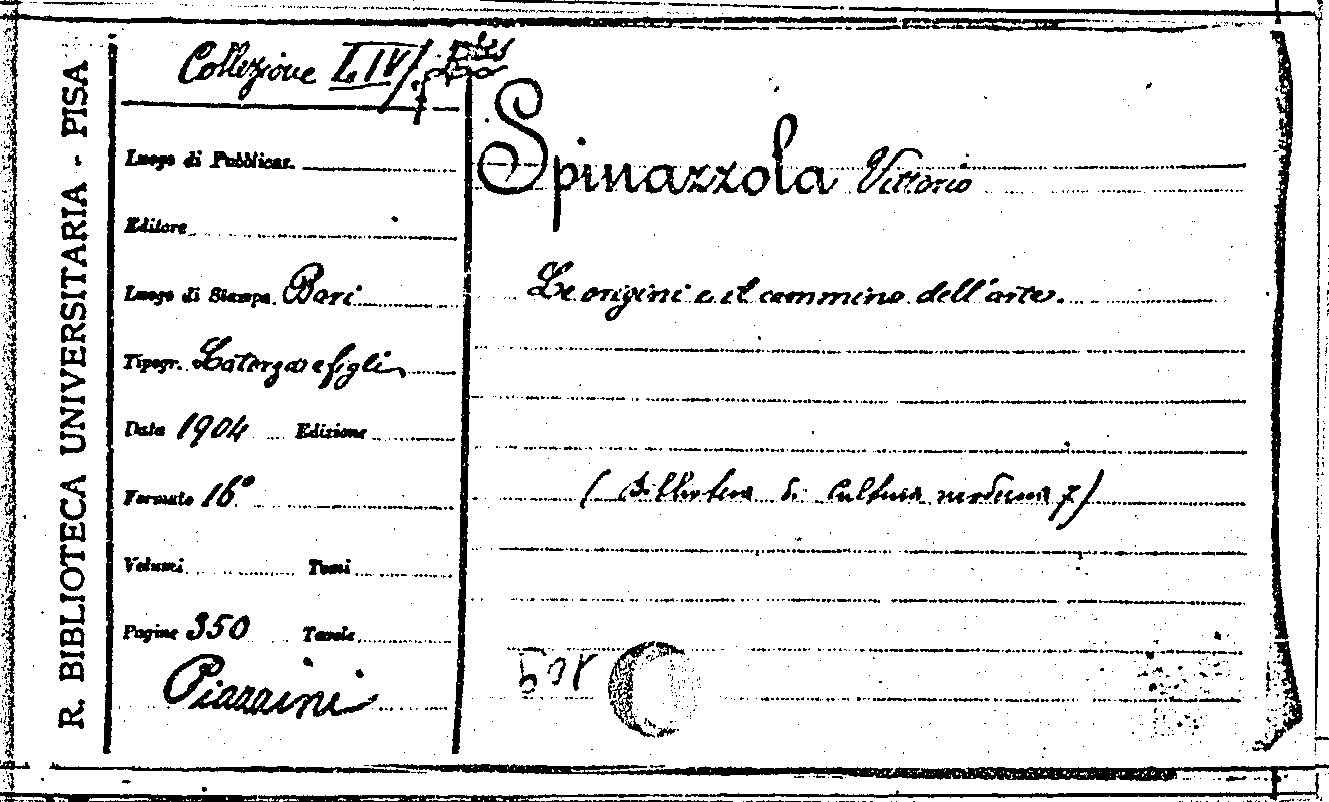 R. BIBLIOTECA UNIVERSITARIA - PISA
Collezione LIV/
Luogo di Pubblicaz.
Editore
Luogo di Stampa Bari
Tipogr. Laterza e figli
Data 1904 Edizione
Formato 16°
Volumi Tomi
Pagine 350 Tavole
Piazzini
Spinazzola Vittorio
Le origini e il cammino dell'arte.
(Biblioteca di Cultura moderna 7)